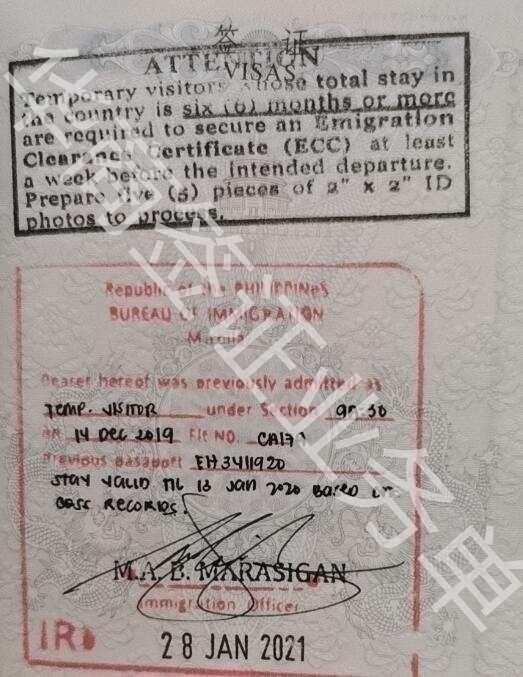 签 证
ATTENTION
VISAS
Temporary visitors whose total stay in
the country is six (6) months or more
are required to secure an Emigration
Clearance Certificate (ECC) at least
a week before the intended departure.
Prepare five (5) pieces of 2" x 2" ID
photos to process.
Republic of the PHILIPPINES
BUREAU OF IMMIGRATION
Manila
Bearer hereof was previously admitted as
TEMP. VISITOR under Section 9A-30
on 14 DEC 2019 FLT NO. CA17
Previous passport EH3411920
STAY VALID TIL 13 JAN 2020 BASED ON
RECORDS.
M.A. B. MARASIGAN
Immigration Officer
28 JAN 2021
签证业务单